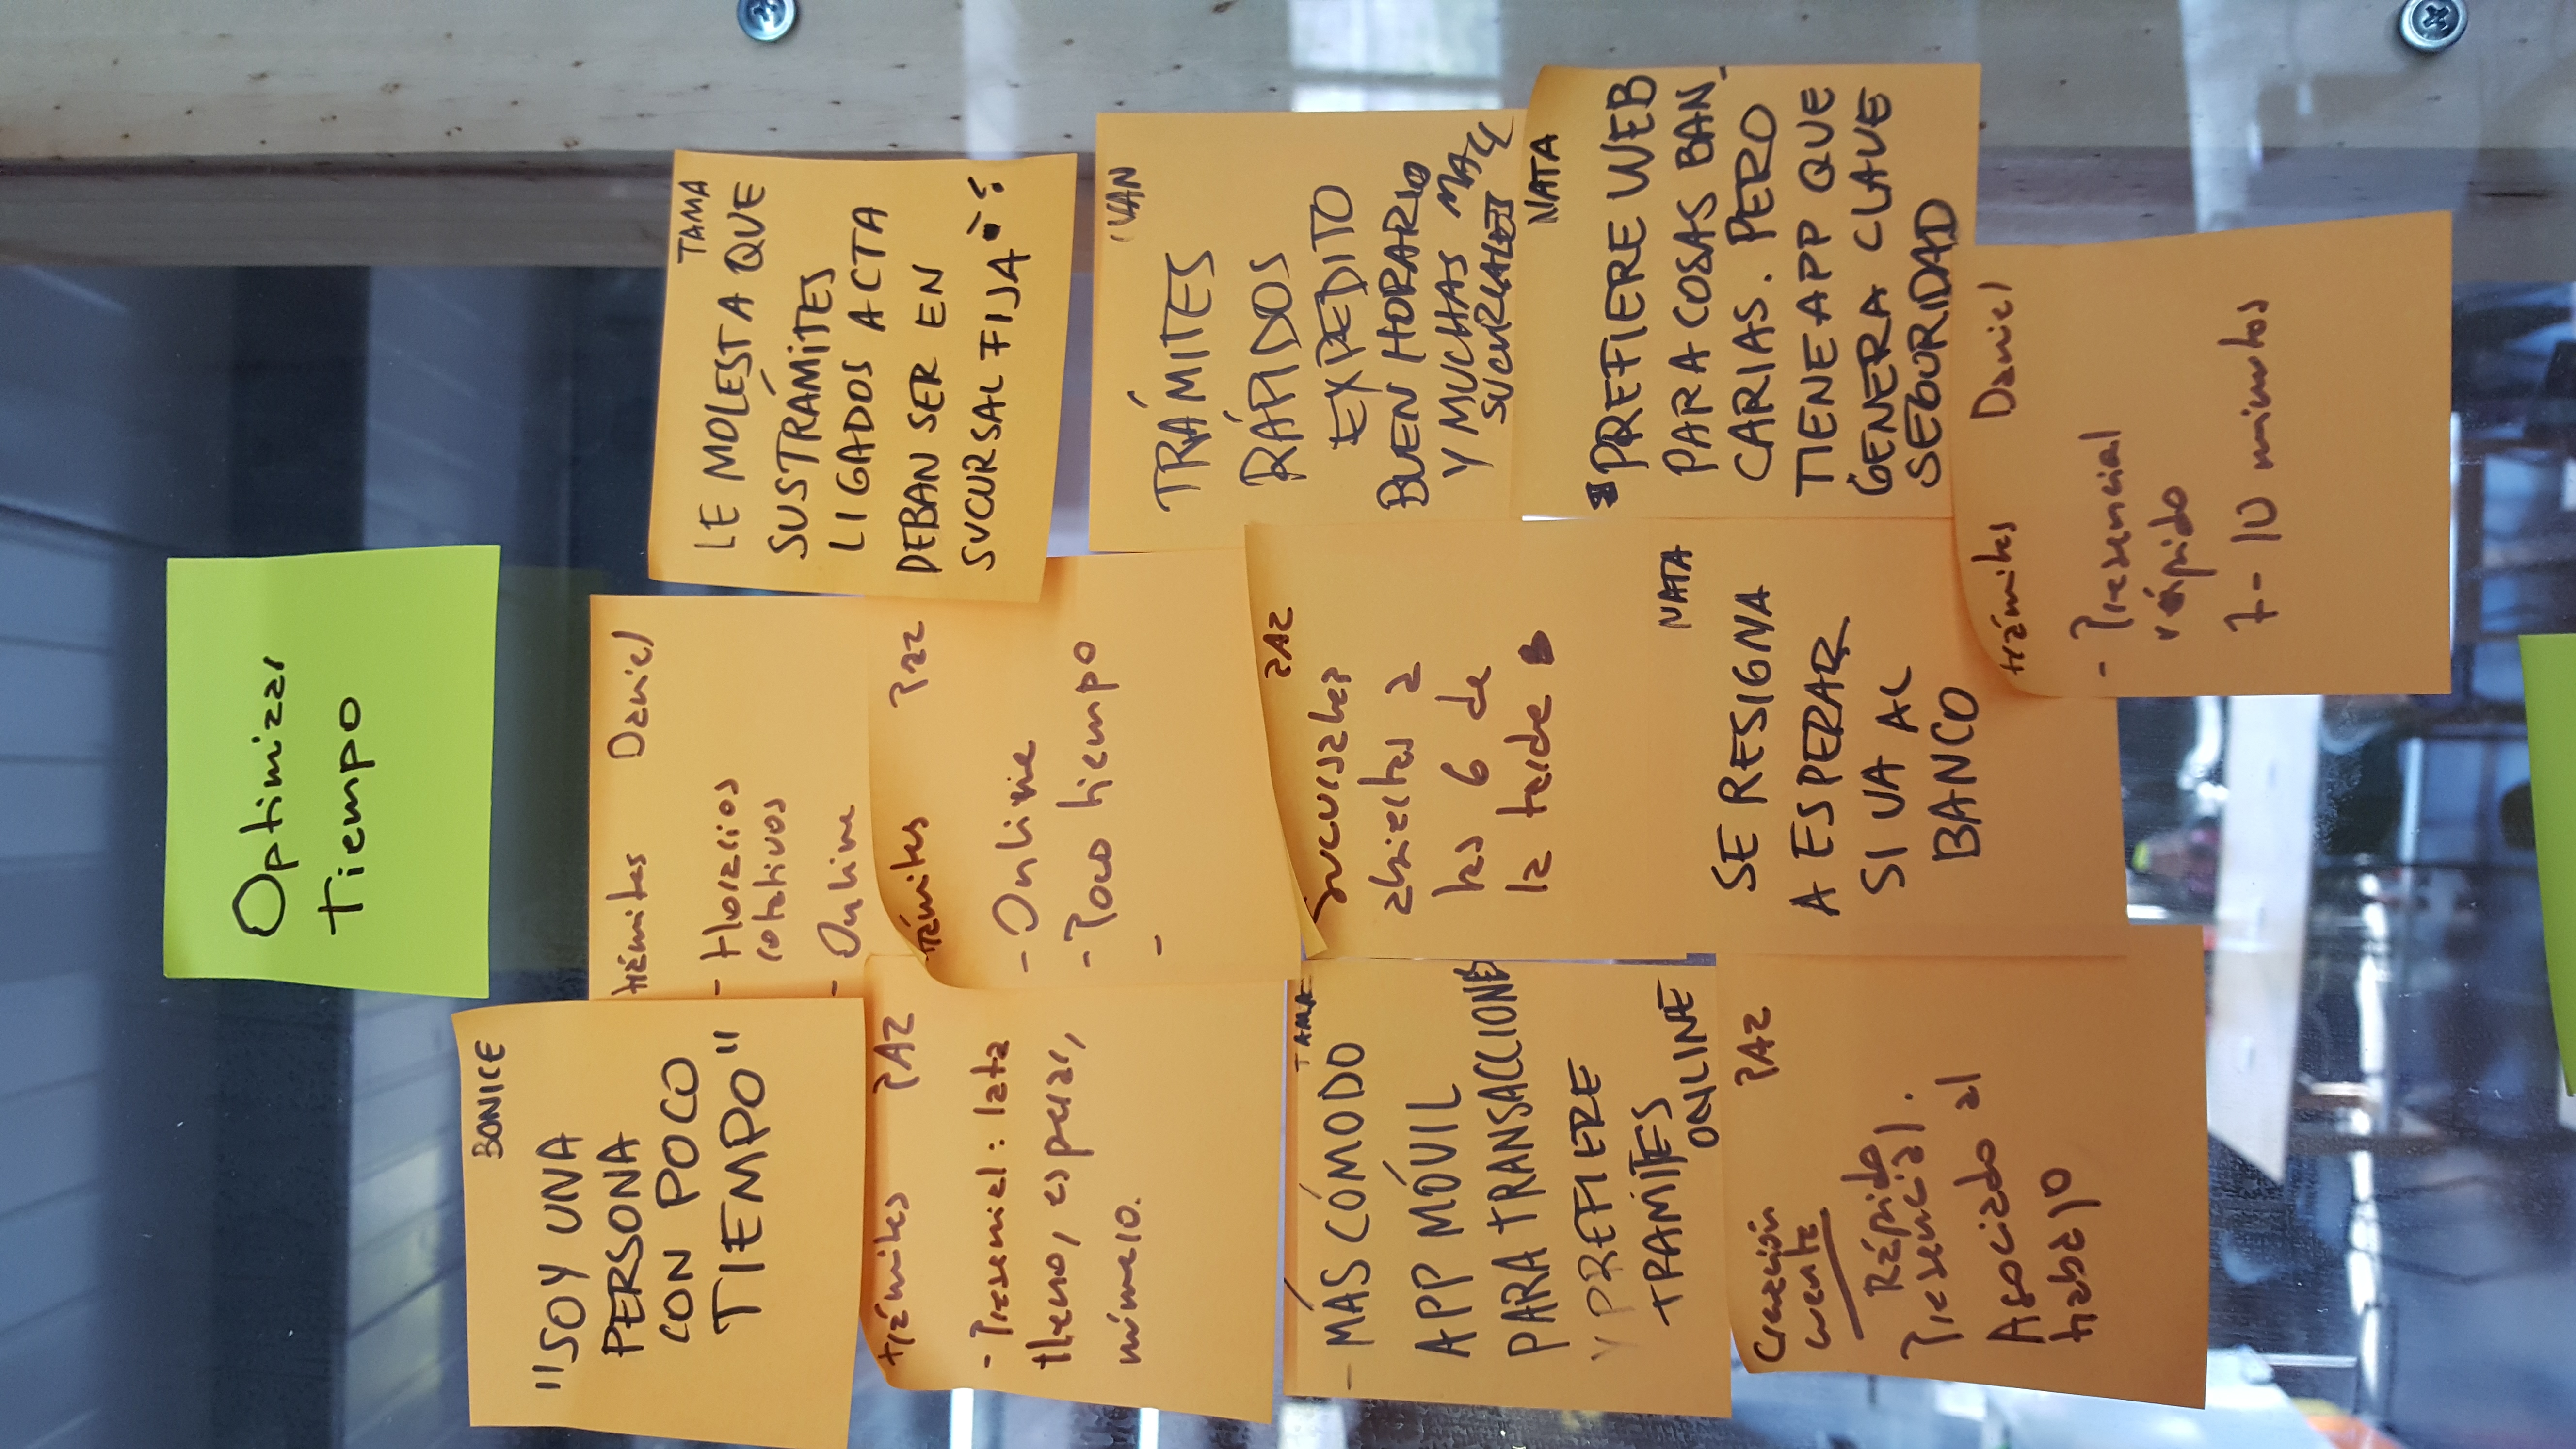 Optimizar
Tiempo
BONICE
"SOY UNA
PERSONA
CON POCO
TIEMPO"
trámites Daniel
- Horarios
rotativos
- Online
TAMA
LE MOLESTA QUE
SUS TRÁMITES
LIGADOS A CTA
DEBAN SER EN
SUCURSAL FIJA
trámites PAZ
- Presencial: lata
lleno, esperar,
número.
trámites Paz
- Online
- Poco tiempo
-
IVAN
TRÁMITES
RÁPIDOS
EXPEDITO
BUEN HORARIO
Y MUCHAS MALL
SUCURSALES
TAMA
- MÁS CÓMODO
APP MÓVIL
PARA TRANSACCIONES
Y PREFIERE
TRAMITES
ONLINE
PAZ
Sucursales
abiertas a
las 6 de
la tarde
NATA
PREFIERE WEB
PARA COSAS BAN_
CARIAS. PERO
TIENE APP QUE
GENERA CLAVE
SEGURIDAD
Creación PAZ
cuenta
Rápido
Presencial.
Asociado al
trabajo
NATA
SE RESIGNA
A ESPERAR
SI VA AL
BANCO
trámites Daniel
- Presencial
rápido
7-10 minutos